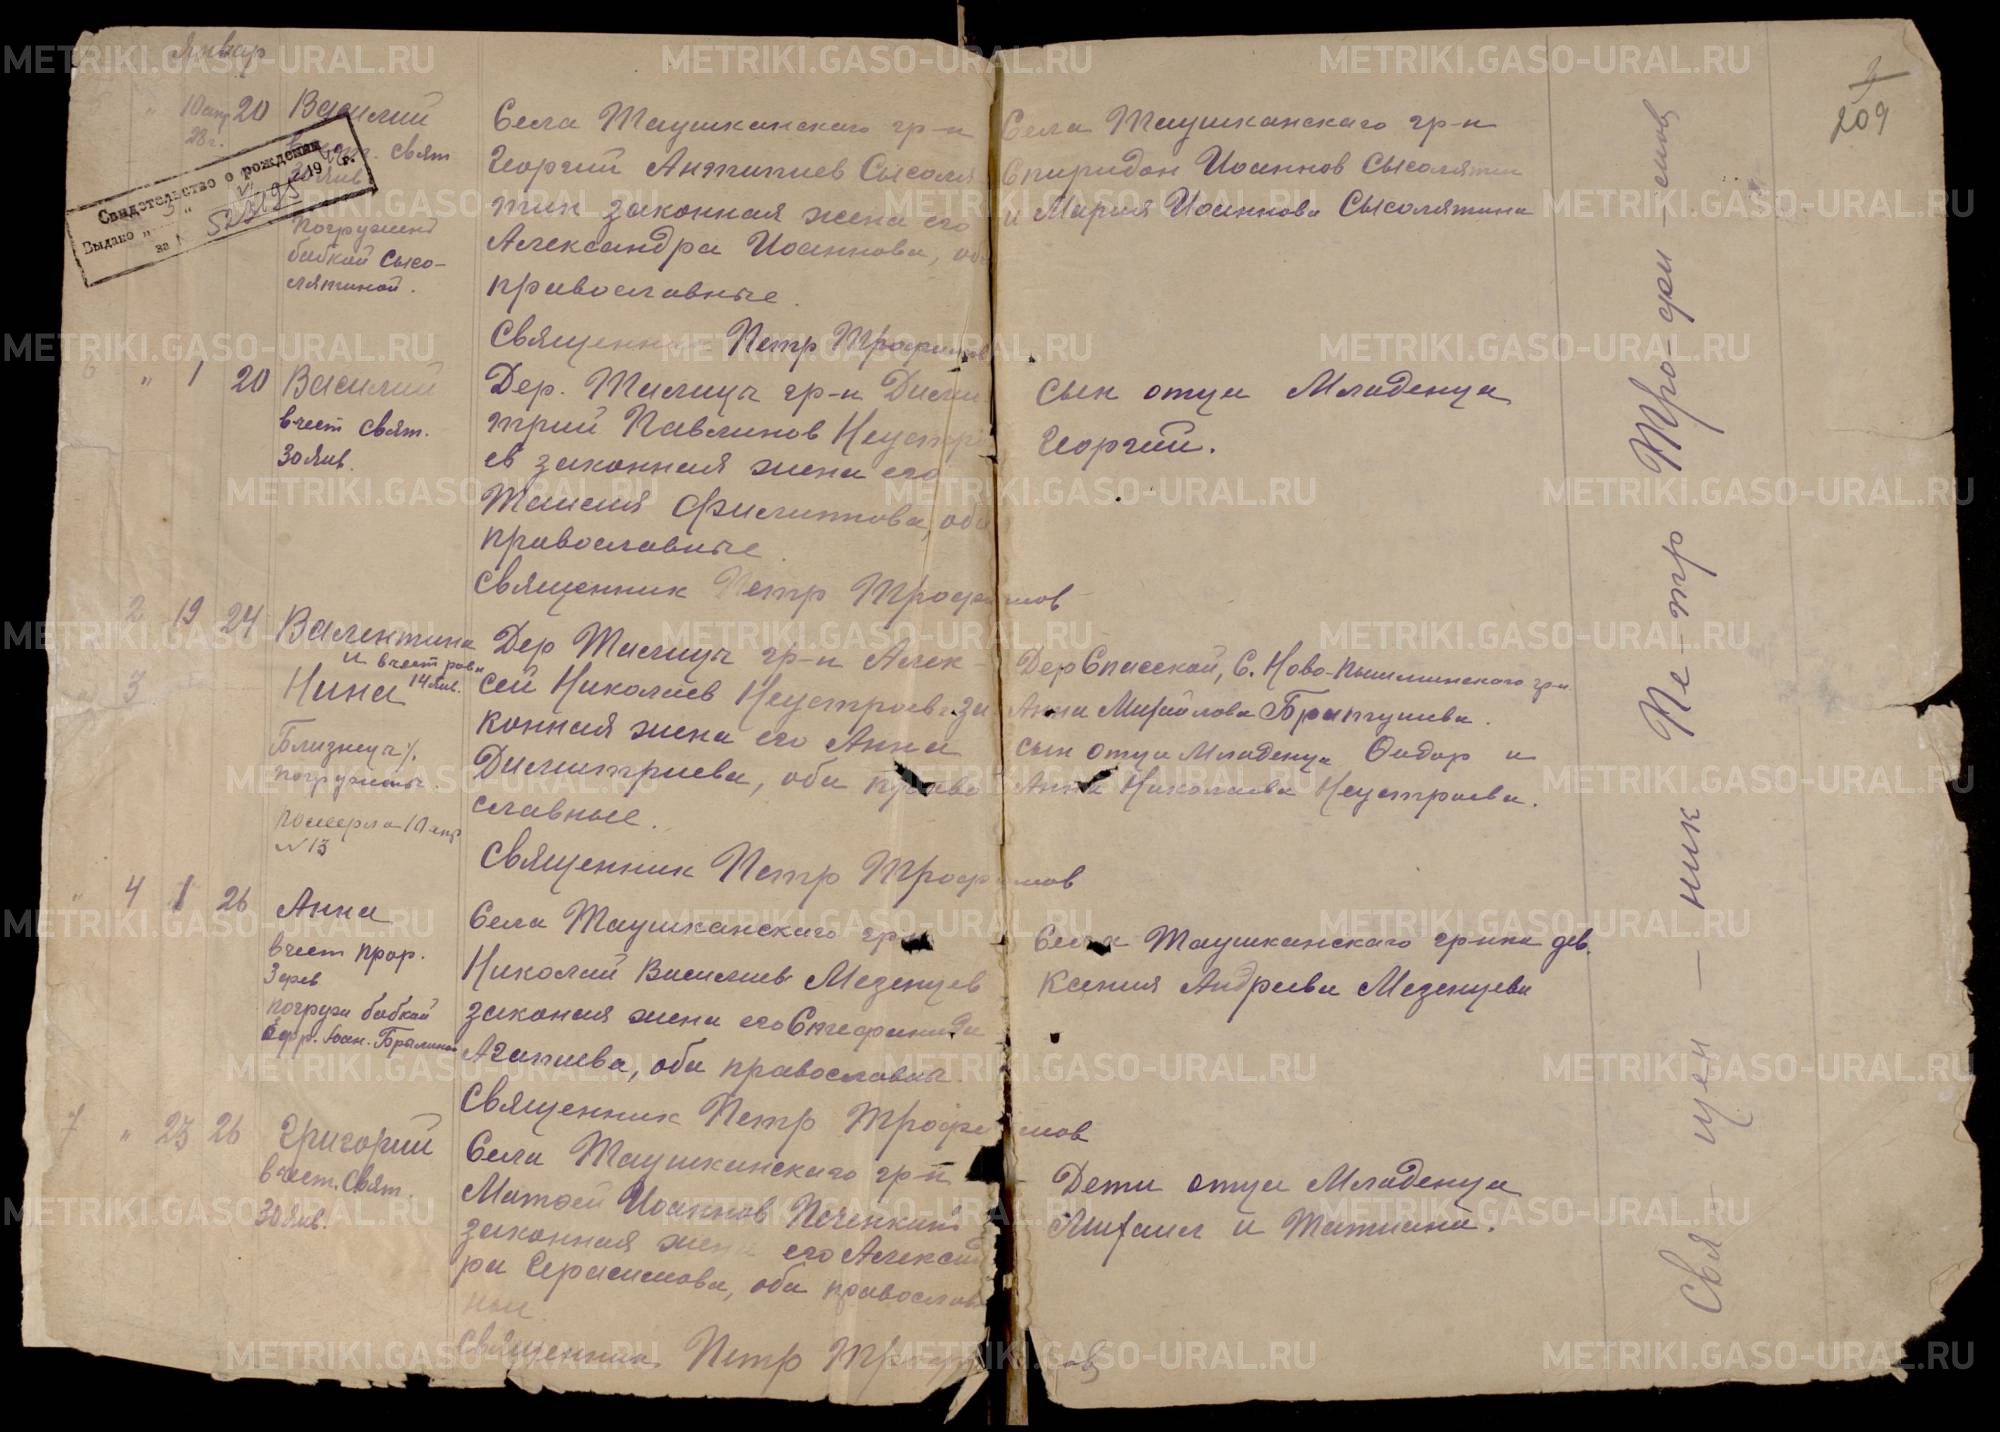 Январ
10 апр 20 Василий
28 г.
Свят
30 Янв
Погружен
бабкой Сысо-
лятиной.
Свидетельство о рождении
Выдано
19 г.
за №
Села Таушканскаго гр-н
Георгий Антипиев Сысоля
тин законная жена его
Александра Иоаннова, оба
православные.
Священник Петр Трофимов
Села Таушканскаго гр-н
Спиридон Иоаннов Сысолятин
и Мария Иоаннова Сысолятина
209
6 " 1 20 Василий
в чест Свят.
30 Янв.
Дер. Талица гр-н Дими
трий Павлинов Неустро
ев законная жена его
Таисия Филиппова, оба
православные.
Священник Петр Трофимов
сын отца Младенца
Георгий.
2 19 24 Валентина
и в чест равн
3 Нина 14 Янв.
Близнецы
погружены.
померла 10 апр
№ 13
Дер Талица гр-н Алек-
сей Николаев Неустроев за
конная жена его Анна
Димитриева, оба право
славные.
Священник Петр Трофимов
Дер Спасской, С. Ново-Пышминскаго гр-н
Анна Михайлова Братушева.
сын отца Младенца Феодор и
Анна Николаева Неустроева.
" 4 1 26 Анна
в чест прор.
3 фев
погруж бабкой
Села Таушканскаго гр-н
Николай Василиев Мезенцев
законая жена его Стефанида
Агапиева, оба православны.
Священник Петр Трофимов
Села Таушканскаго гр-нка дев.
Ксения Андреева Мезенцева
7 " 23 26 Григорий
в чест. Свят.
30 Янв.
Села Таушканскаго гр-н
Матфей Иоаннов Печенкин
законная жена его Александ
ра Герасимова, оба православ
ные
Священник Петр Трофимов
Дети отца Младенца
Михаил и Татиана.
Свя-щен-ник Пе-тр Тро-фи-мов
METRIKI.GASO-URAL.RU